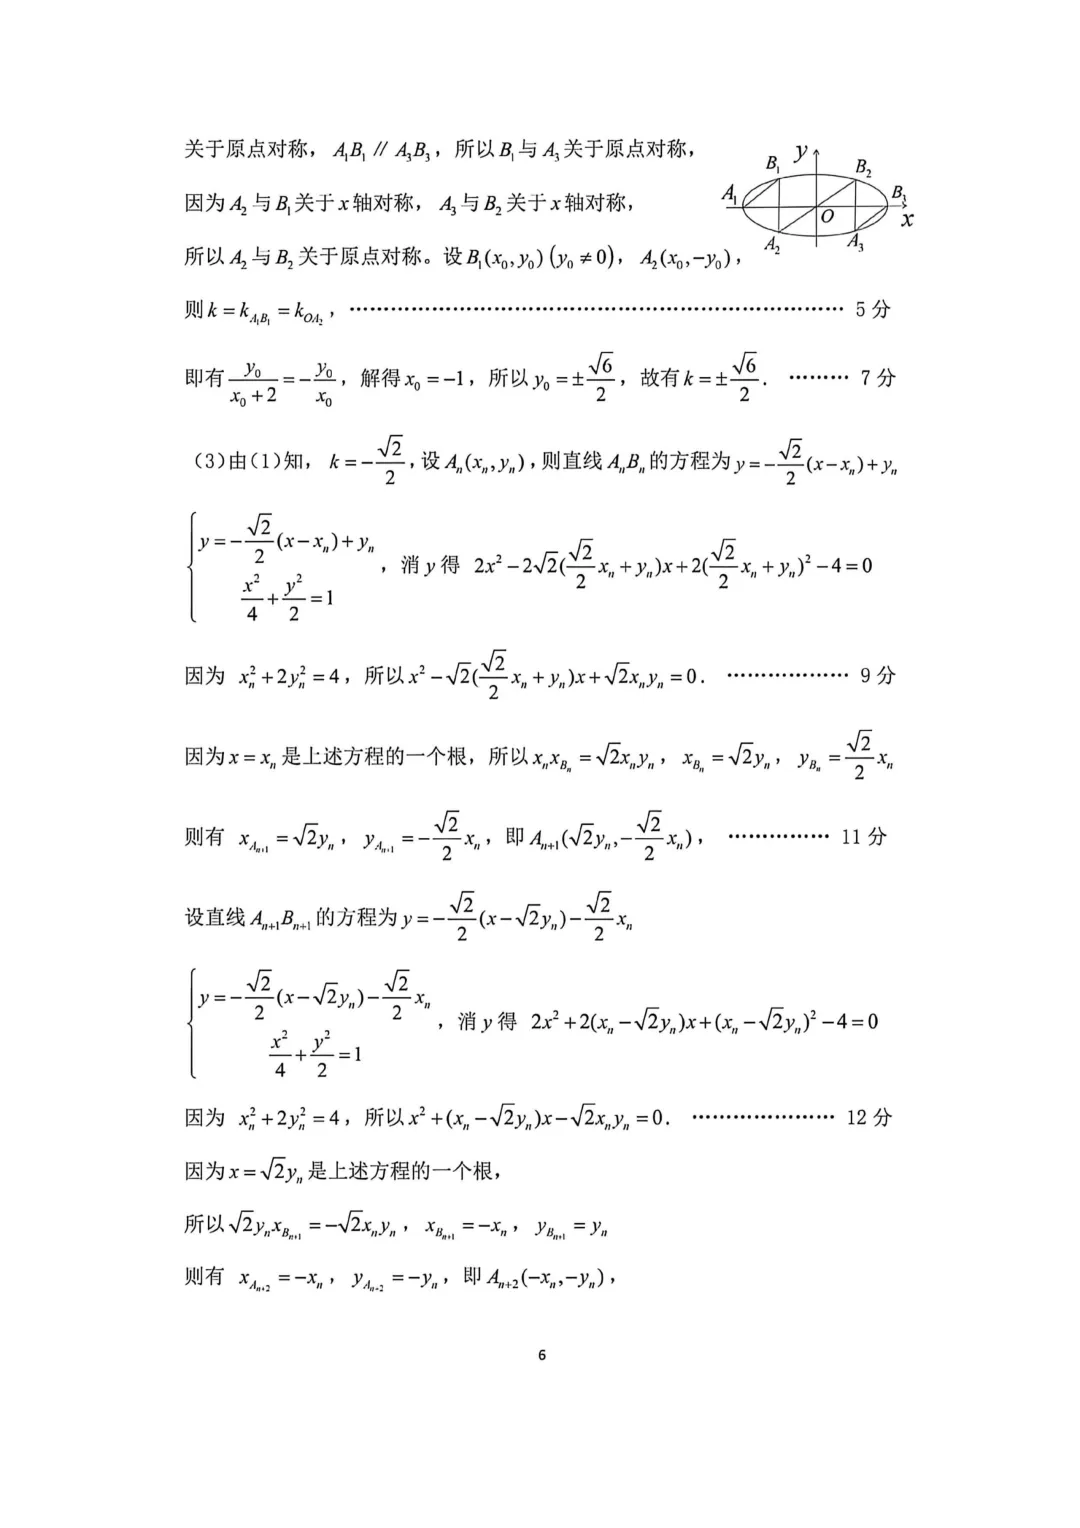 关于原点对称，$A_1B_1 \parallel A_3B_3$，所以$B_1$与$A_3$关于原点对称，
因为$A_2$与$B_1$关于$x$轴对称，$A_3$与$B_2$关于$x$轴对称，
所以$A_2$与$B_2$关于原点对称。设$B_1(x_0,y_0)(y_0\neq 0)$，$A_2(x_0,-y_0)$，
$y$ $B_1$ $B_2$ $A_1$ $B_3$ $O$ $x$ $A_2$ $A_3$
则$k=k_{A_1B_1}=k_{OA_2}$，………………………………………………………… 5 分
即有$\frac{y_0}{x_0+2}=-\frac{y_0}{x_0}$，解得$x_0=-1$，所以$y_0=\pm\frac{\sqrt{6}}{2}$，故有$k=\pm\frac{\sqrt{6}}{2}$． ……… 7 分
（3）由（1）知，$k=-\frac{\sqrt{2}}{2}$，设$A_n(x_n,y_n)$，则直线$A_nB_n$的方程为$y=-\frac{\sqrt{2}}{2}(x-x_n)+y_n$
$\begin{cases} y=-\frac{\sqrt{2}}{2}(x-x_n)+y_n \\ \frac{x^2}{4}+\frac{y^2}{2}=1 \end{cases}$，消$y$得 $2x^2-2\sqrt{2}(\frac{\sqrt{2}}{2}x_n+y_n)x+2(\frac{\sqrt{2}}{2}x_n+y_n)^2-4=0$
因为 $x_n^2+2y_n^2=4$，所以$x^2-\sqrt{2}(\frac{\sqrt{2}}{2}x_n+y_n)x+\sqrt{2}x_ny_n=0$． ……………… 9 分
因为$x=x_n$是上述方程的一个根，所以$x_nx_{B_n}=\sqrt{2}x_ny_n$，$x_{B_n}=\sqrt{2}y_n$，$y_{B_n}=\frac{\sqrt{2}}{2}x_n$
则有 $x_{A_{n+1}}=\sqrt{2}y_n$，$y_{A_{n+1}}=-\frac{\sqrt{2}}{2}x_n$，即$A_{n+1}(\sqrt{2}y_n,-\frac{\sqrt{2}}{2}x_n)$， …………… 11 分
设直线$A_{n+1}B_{n+1}$的方程为$y=-\frac{\sqrt{2}}{2}(x-\sqrt{2}y_n)-\frac{\sqrt{2}}{2}x_n$
$\begin{cases} y=-\frac{\sqrt{2}}{2}(x-\sqrt{2}y_n)-\frac{\sqrt{2}}{2}x_n \\ \frac{x^2}{4}+\frac{y^2}{2}=1 \end{cases}$，消$y$得 $2x^2+2(x_n-\sqrt{2}y_n)x+(x_n-\sqrt{2}y_n)^2-4=0$
因为 $x_n^2+2y_n^2=4$，所以$x^2+(x_n-\sqrt{2}y_n)x-\sqrt{2}x_ny_n=0$． ………………… 12 分
因为$x=\sqrt{2}y_n$是上述方程的一个根，
所以$\sqrt{2}y_nx_{B_{n+1}}=-\sqrt{2}x_ny_n$，$x_{B_{n+1}}=-x_n$，$y_{B_{n+1}}=y_n$
则有 $x_{A_{n+2}}=-x_n$，$y_{A_{n+2}}=-y_n$，即$A_{n+2}(-x_n,-y_n)$，
6